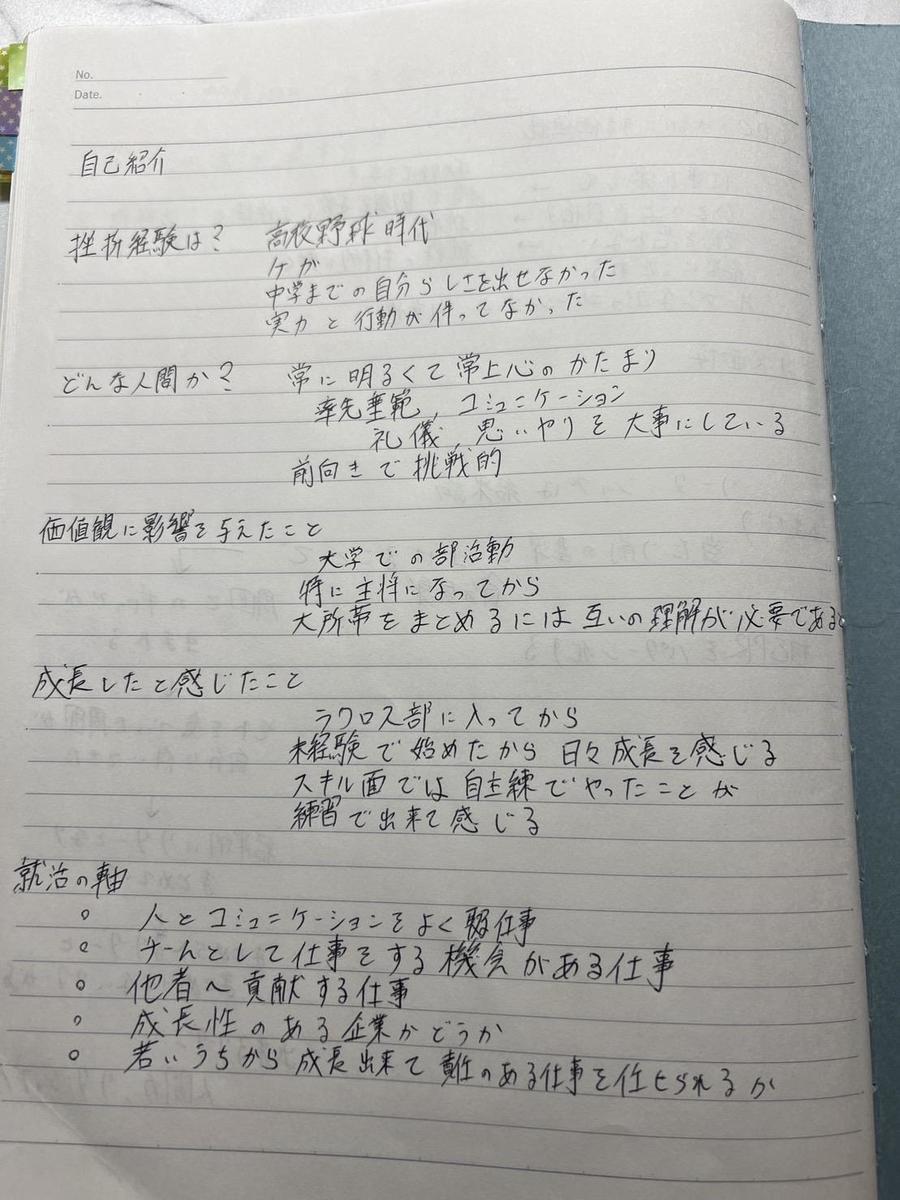 No.
Date.
自己紹介
挫折経験は? 高校野球時代
ケガ
中学までの自分らしさを出せなかった
実力と行動が伴ってなかった
どんな人間か? 常に明るくて常上心のかたまり
率先垂範, コミュニケーション
礼儀, 思いやりを大事にしている
前向きで挑戦的
価値観に影響を与えたこと
大学での部活動
特に主将になってから
大所帯をまとめるには互いの理解が必要であると
成長したと感じたこと
ラクロス部に入ってから
未経験で始めたから日々成長を感じる
スキル面では自主練でやったことが
練習で出来て感じる
就活の軸
○ 人とコミュニケーションをよく取る仕事
○ チームとして仕事をする機会がある仕事
○ 他者へ貢献する仕事
○ 成長性のある企業かどうか
○ 若いうちから成長出来て責任のある仕事を任せられるか